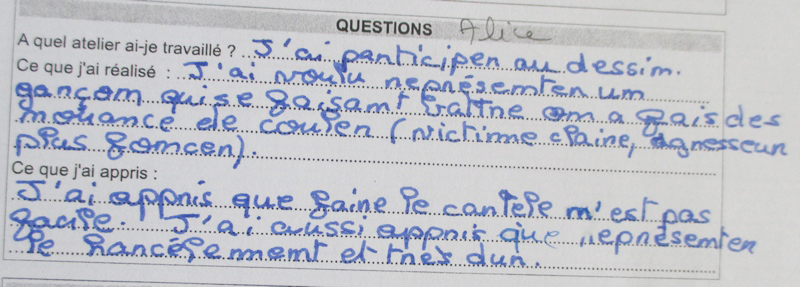 QUESTIONS Alice
A quel atelier ai-je travaillé ? J'ai participer au dessim.
Ce que j'ai réalisé : J'ai voulu représenter um
garçom qui se faisamt battre om a fais des
mouance de couler (victime claire, agresseur
plus fomcer).
Ce que j'ai appris :
J'ai appris que faire le cartele m'est pas
facile. J'ai aussi appris que représemter
le harcélememt et très dur.